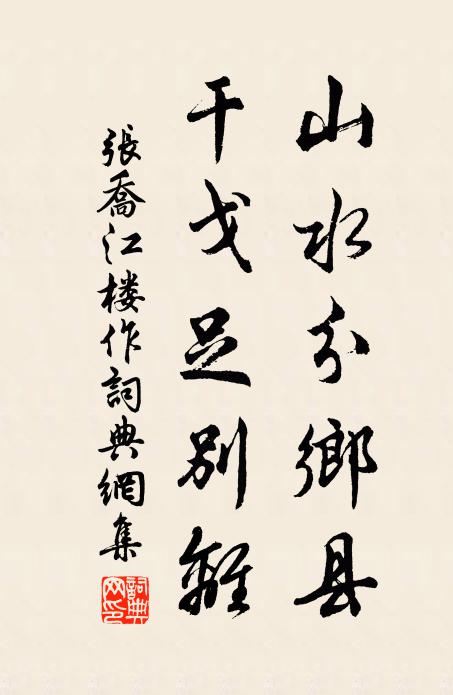 山水分鄉县
干戈足别離
張喬江楼作詞典網集
詞典網印